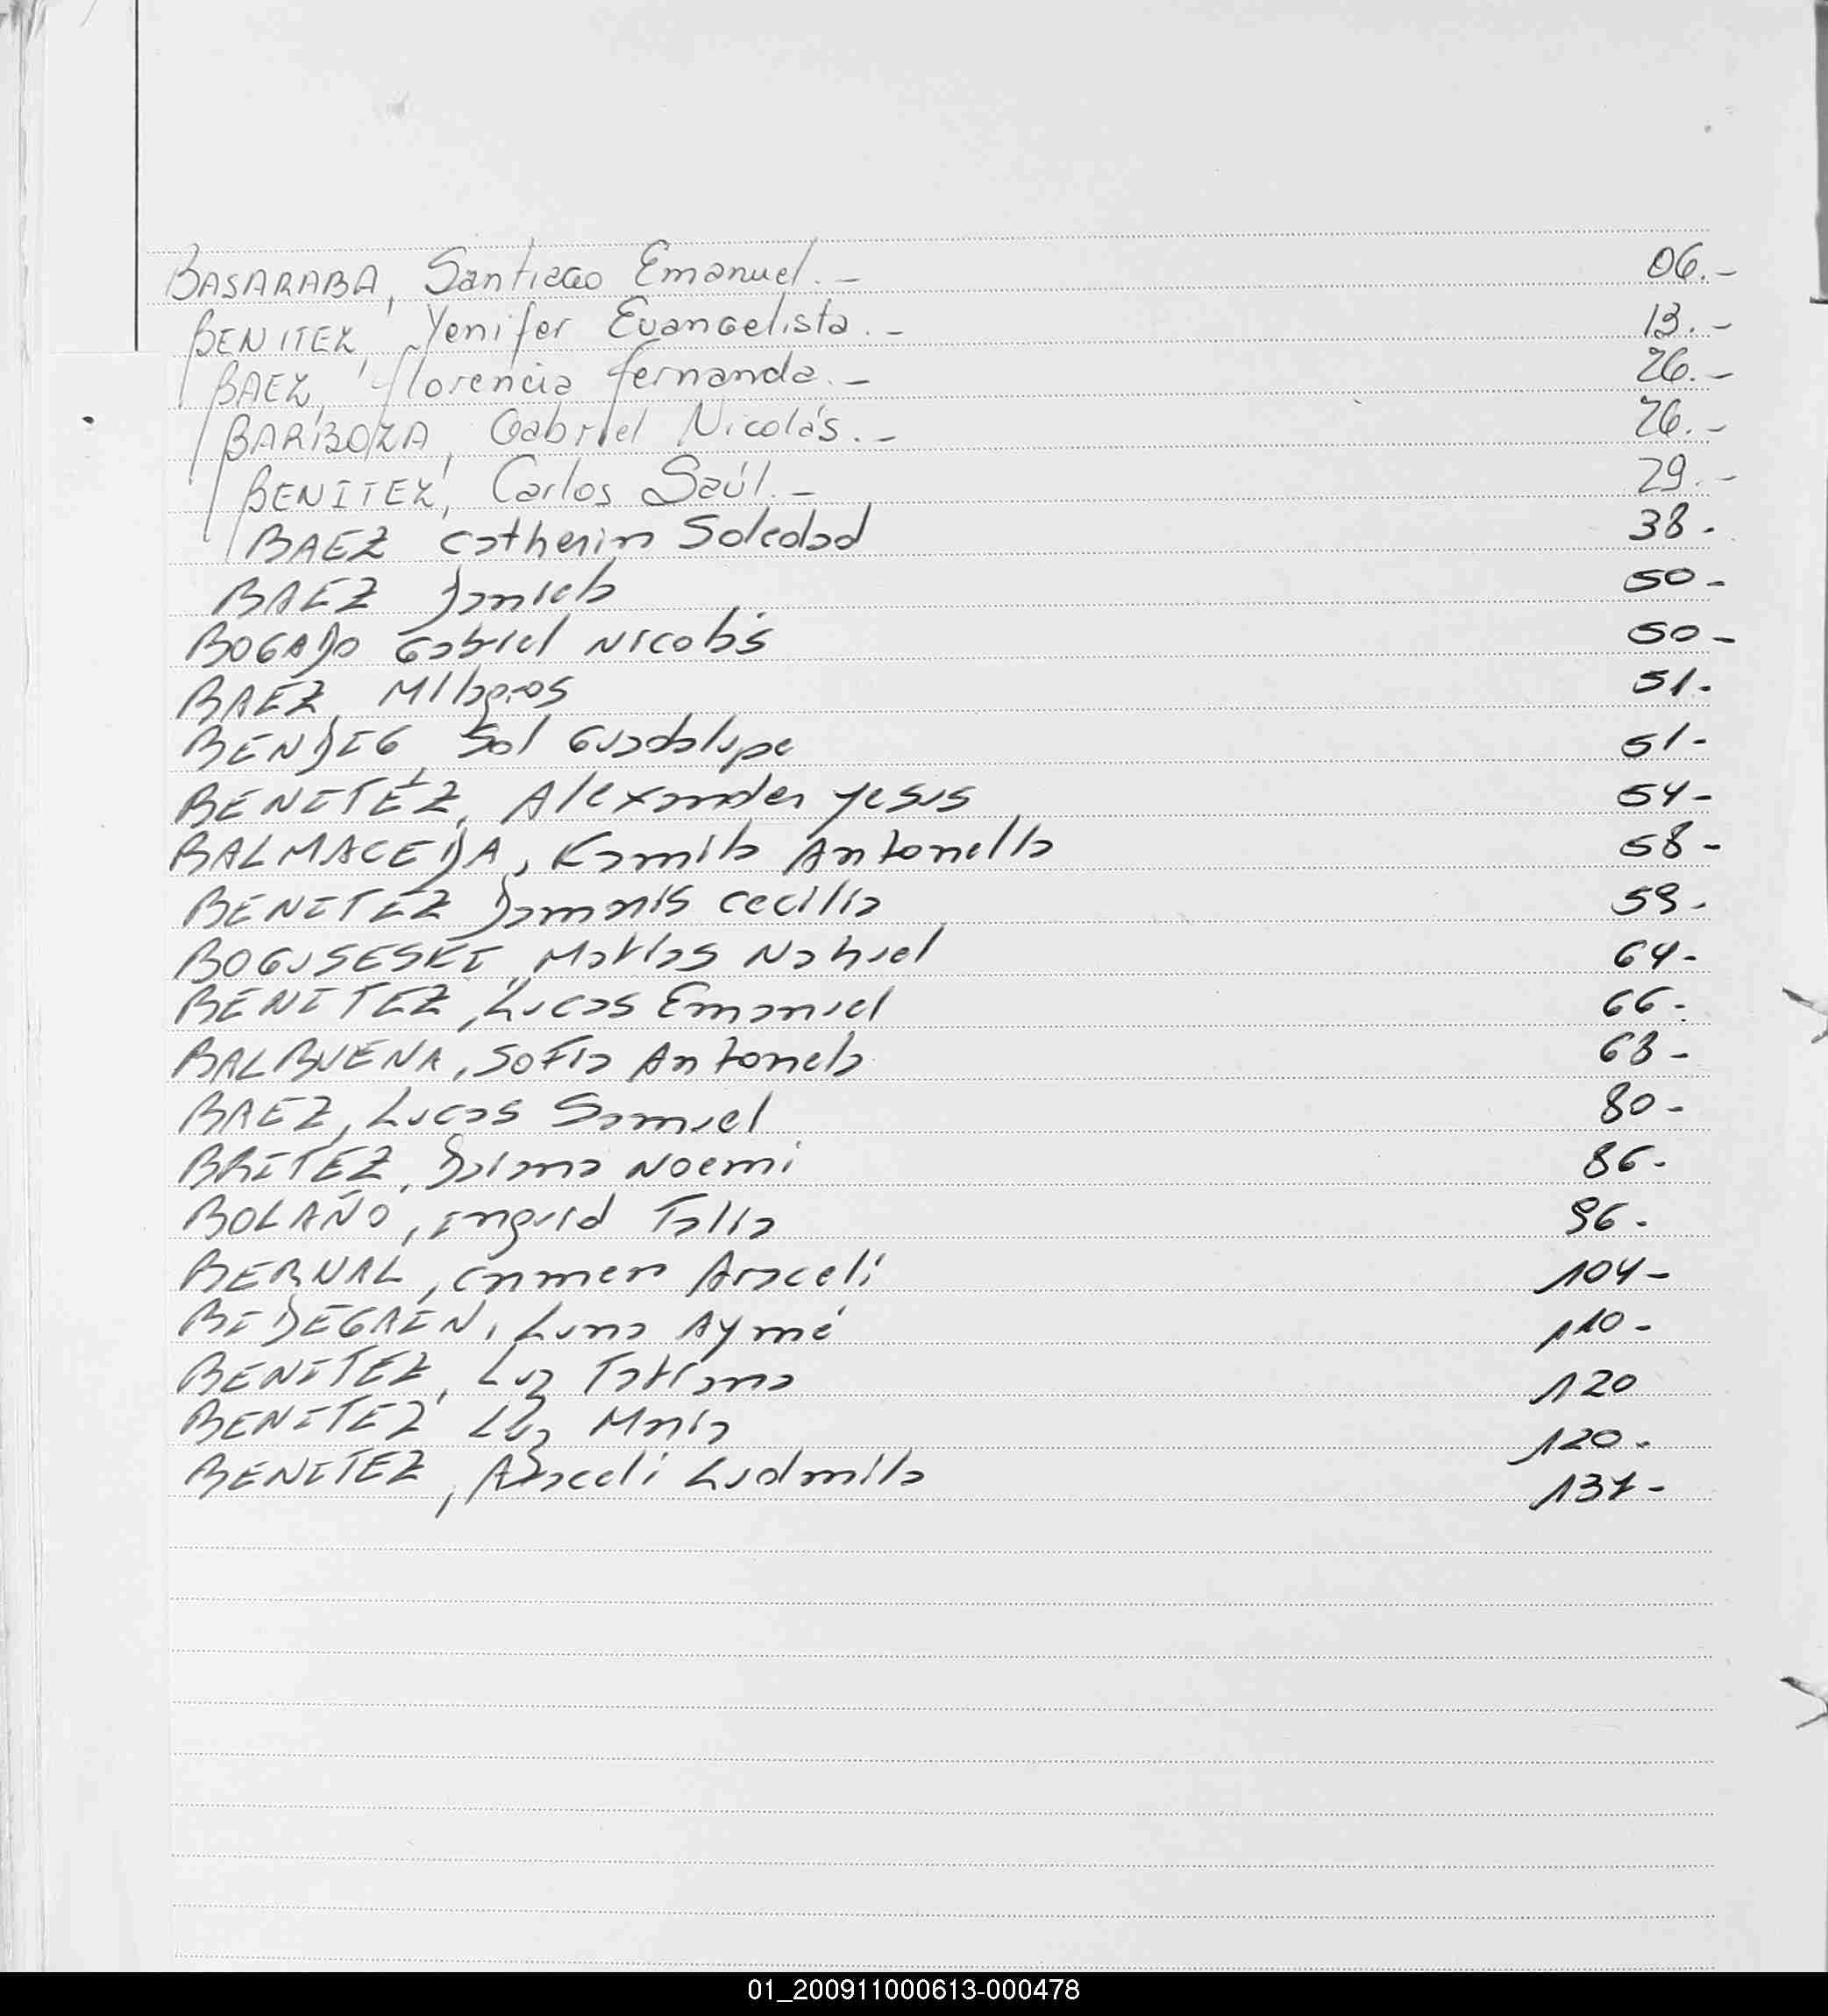 BASARABA, Santiago Emanuel.- 06.-
BENITEZ, Yenifer Evangelista.- 13.-
BAEZ, Florencia Fernanda.- 26.-
BARBOZA, Gabriel Nicolás.- 26.-
BENITEZ, Carlos Saúl.- 29.-
BAEZ Catherin Soledad 38.
BAEZ Daniela 50-
BOGADO Gabriel Nicolás 50-
BAEZ Milagros 51.
BENDIG, Sol Guadalupe 51-
BENITEZ, Alexander Yesus 54-
BALMACEDA, Kamila Antonella 58-
BENITEZ Damaris Cecilia 59.
BOGUSESKI, Matías Nahuel 64-
BENITEZ, Lucas Emanuel 66-
BALBUENA, Sofia Antonela 68-
BAEZ, Lucas Samuel 80-
BRITEZ, Daiana Noemi 86-
BOLAÑO, Ingrid Talia 96.
BERNAL, Carmen Araceli 104-
BIDEGAIN, Luna Aymé 110-
BENITEZ, Luz Tatiana 120
BENITEZ Luz María 120.
BENITEZ, Araceli Ludmila
01_200911000613-000478